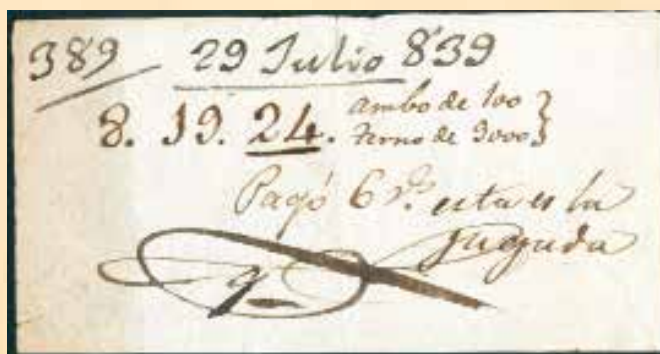 389 29 Julio 839
8. 19. 24. ambo de 100 }
terno de 3000 }
Pagó 6 rs. esta es la
jugada